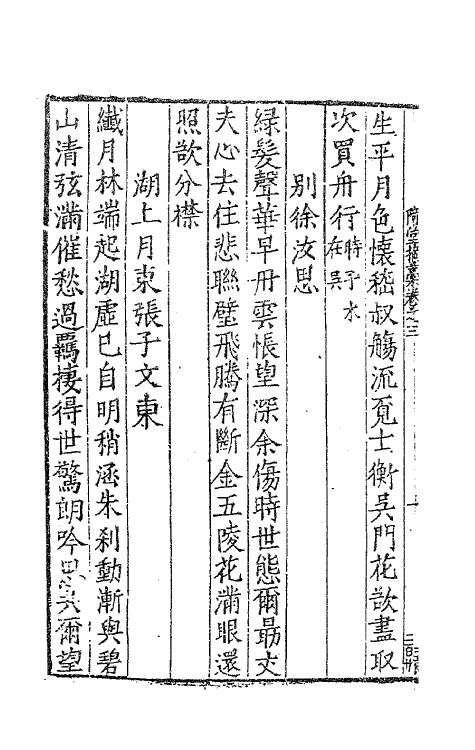 生平月色懷嵇叔觴流覔士衡吳門花欲盡取
次買舟行時予水在吳
別徐汝思
綠髮聲華早丹雲悵望深余傷時世態爾最丈
夫心去住悲聯璧飛騰有斷金五陵花滿眼還
照欲分襟
湖上月柬張子文東
纖月林端起湖虛已自明稍涵朱刹動漸與碧
山清弦滿催愁過羈棲得世驚朗吟思爾望